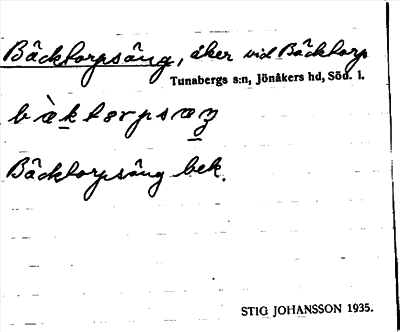 Bäcktorpsäng, åker vid Bäcktorp
Tunabergs s:n, Jönåkers hd, Söd. l.
Bäcktorpsäng bek.
STIG JOHANSSON 1935.